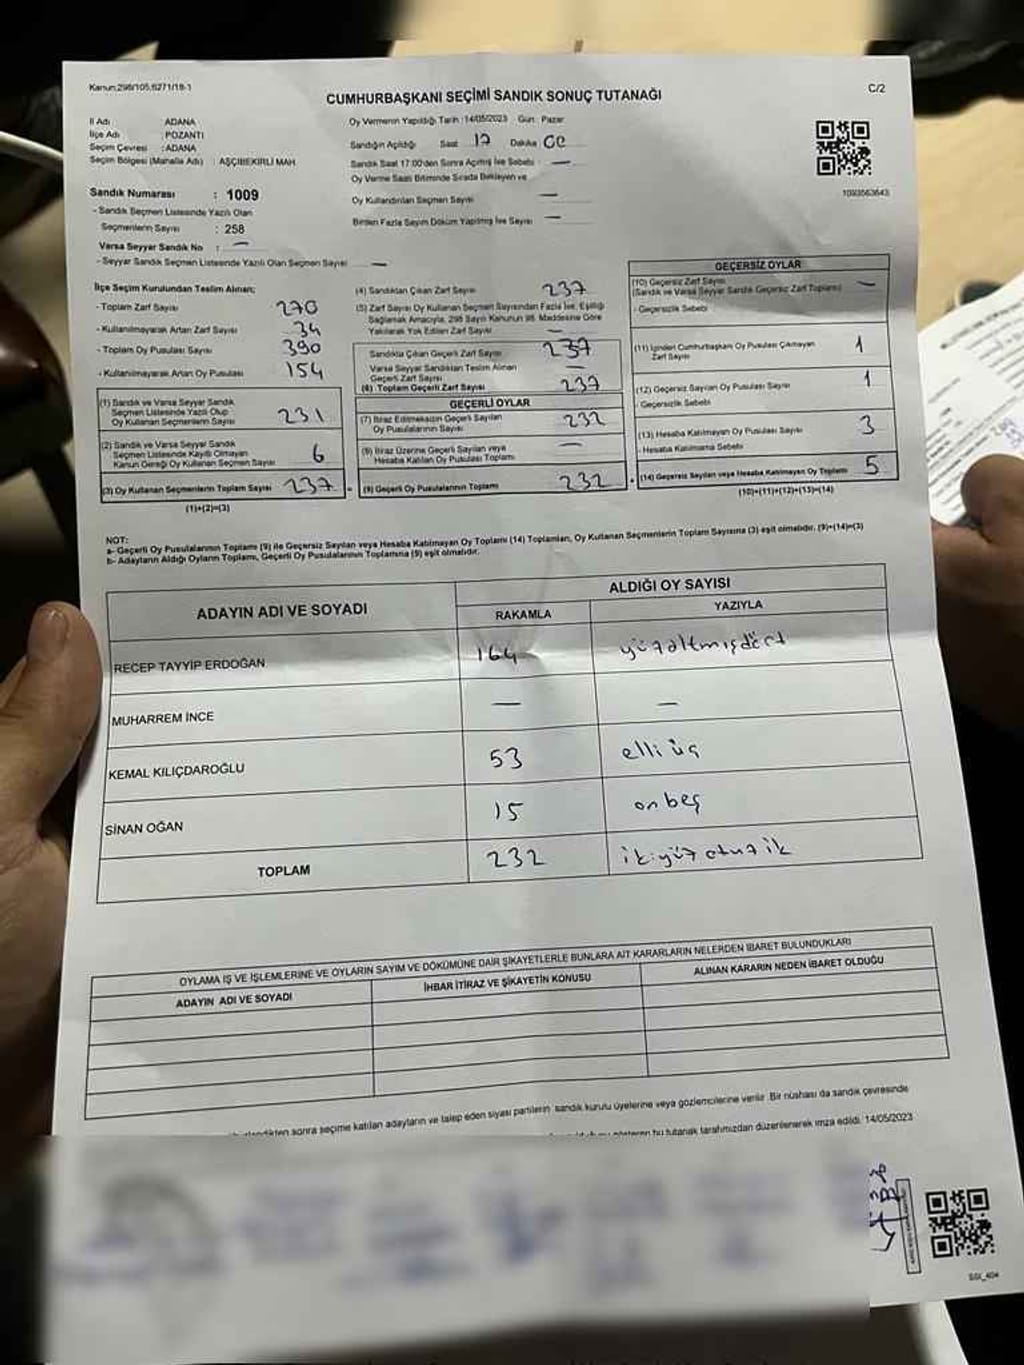 Kanun;298/105,6271/18-1
CUMHURBAŞKANI SEÇİMİ SANDIK SONUÇ TUTANAĞI
C/2
İl Adı ADANA
İlçe Adı : POZANTI
Seçim Çevresi : ADANA
Seçim Bölgesi (Mahalle Adı) : AŞÇIBEKİRLİ MAH.
Sandık Numarası : 1009
- Sandık Seçmen Listesinde Yazılı Olan
Seçmenlerin Sayısı : 258
Varsa Seyyar Sandık No : —
- Seyyar Sandık Seçmen Listesinde Yazılı Olan Seçmen Sayısı —
Oy Vermenin Yapıldığı Tarih :14/05/2023 Gün : Pazar
Sandığın Açıldığı Saat 17 Dakika 00
Sandık Saat 17:00'den Sonra Açılmış İse Sebebi : —
Oy Verme Saati Bitiminde Sırada Bekleyen ve
Oy Kullandırılan Seçmen Sayısı —
Birden Fazla Sayım Döküm Yapılmış İse Sayısı —
1093563643
İlçe Seçim Kurulundan Teslim Alınan;
- Toplam Zarf Sayısı 270
- Kullanılmayarak Artan Zarf Sayısı 34
- Toplam Oy Pusulası Sayısı 390
- Kullanılmayarak Artan Oy Pusulası 154
(1) Sandık ve Varsa Seyyar Sandık
Seçmen Listesinde Yazılı Olup
Oy Kullanan Seçmenlerin Sayısı 231
(2) Sandık ve Varsa Seyyar Sandık
Seçmen Listesinde Kayıtlı Olmayan
Kanun Gereği Oy Kullanan Seçmen Sayısı 6
(3) Oy Kullanan Seçmenlerin Toplam Sayısı 237 =
(1)+(2)=(3)
(4) Sandıktan Çıkan Zarf Sayısı 237
(5) Zarf Sayısı Oy Kullanan Seçmen Sayısından Fazla İse, Eşitliği
Sağlamak Amacıyla, 298 Sayılı Kanunun 98. Maddesine Göre
Yakılarak Yok Edilen Zarf Sayısı —
Sandıkta Çıkan Geçerli Zarf Sayısı 237
Varsa Seyyar Sandıktan Teslim Alınan
Geçerli Zarf Sayısı —
(6) Toplam Geçerli Zarf Sayısı 237
GEÇERLİ OYLAR
(7) İtiraz Edilmeksizin Geçerli Sayılan
Oy Pusulalarının Sayısı 232
(8) İtiraz Üzerine Geçerli Sayılan veya
Hesaba Katılan Oy Pusulası Toplamı —
(9) Geçerli Oy Pusulalarının Toplamı 232 +
GEÇERSİZ OYLAR
(10) Geçersiz Zarf Sayısı
(Sandık ve Varsa Seyyar Sandık Geçersiz Zarf Toplamı) —
- Geçersizlik Sebebi
(11) İçinden Cumhurbaşkanı Oy Pusulası Çıkmayan
Zarf Sayısı 1
(12) Geçersiz Sayılan Oy Pusulası Sayısı 1
- Geçersizlik Sebebi
(13) Hesaba Katılmayan Oy Pusulası Sayısı 3
- Hesaba Katılmama Sebebi
(14) Geçersiz Sayılan veya Hesaba Katılmayan Oy Toplamı 5
(10)+(11)+(12)+(13)=(14)
NOT:
a- Geçerli Oy Pusulalarının Toplamı (9) ile Geçersiz Sayılan veya Hesaba Katılmayan Oy Toplamı (14) Toplamları, Oy Kullanan Seçmenlerin Toplam Sayısına (3) eşit olmalıdır. (9)+(14)=(3)
b- Adayların Aldığı Oyların Toplamı, Geçerli Oy Pusulalarının Toplamına (9) eşit olmalıdır.
ADAYIN ADI VE SOYADI ALDIĞI OY SAYISI
RAKAMLA YAZIYLA
RECEP TAYYİP ERDOĞAN 164 yüzaltmışdört
MUHARREM İNCE — —
KEMAL KILIÇDAROĞLU 53 elli üç
SİNAN OĞAN 15 onbeş
TOPLAM 232 ikiyüz otuz ik
OYLAMA İŞ VE İŞLEMLERİNE VE OYLARIN SAYIM VE DÖKÜMÜNE DAİR ŞİKAYETLERLE BUNLARA AİT KARARLARIN NELERDEN İBARET BULUNDUKLARI
ADAYIN ADI VE SOYADI İHBAR İTİRAZ VE ŞİKAYETİN KONUSU ALINAN KARARIN NEDEN İBARET OLDUĞU
sonra seçime katılan adayların ve talep eden siyasi partilerin sandık kurulu üyelerine veya gözlemcilerine verilir. Bir nüshası da sandık çevresinde
bu tutanak tarafımızdan düzenlenerek imza edildi. 14/05/2023
SSI_404